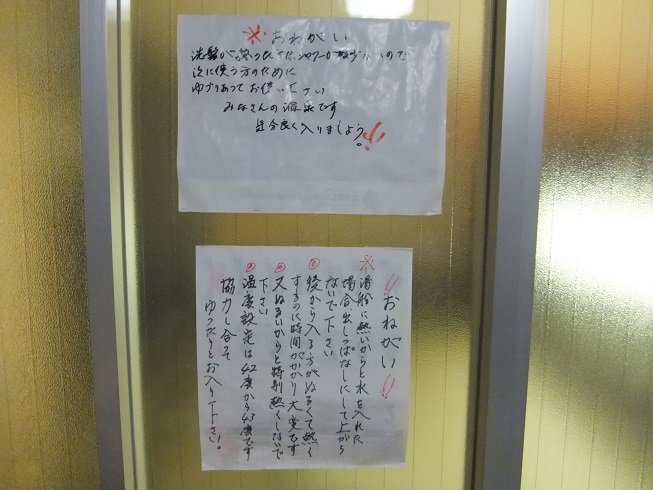 ※ おねがい
洗髪が
次に使う方のために
ゆずりあって お使い下さい
みなさんの温泉です
気分良く入りましょう。!!
!!おねがい!!
※湯船に熱いからと水を入れた
場合出しっぱなしにして上がら
ないで下さい
◎後から入る方がぬるくて熱く
するのに時間がかかり大変です
◎又ぬるいからと特別熱くしないで
下さい
◎温度設定は42度から43度です
協力し合って
ゆったりとお入り下さい!